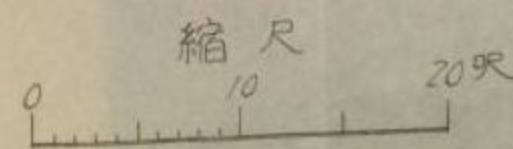 縮尺
0 10 20呎